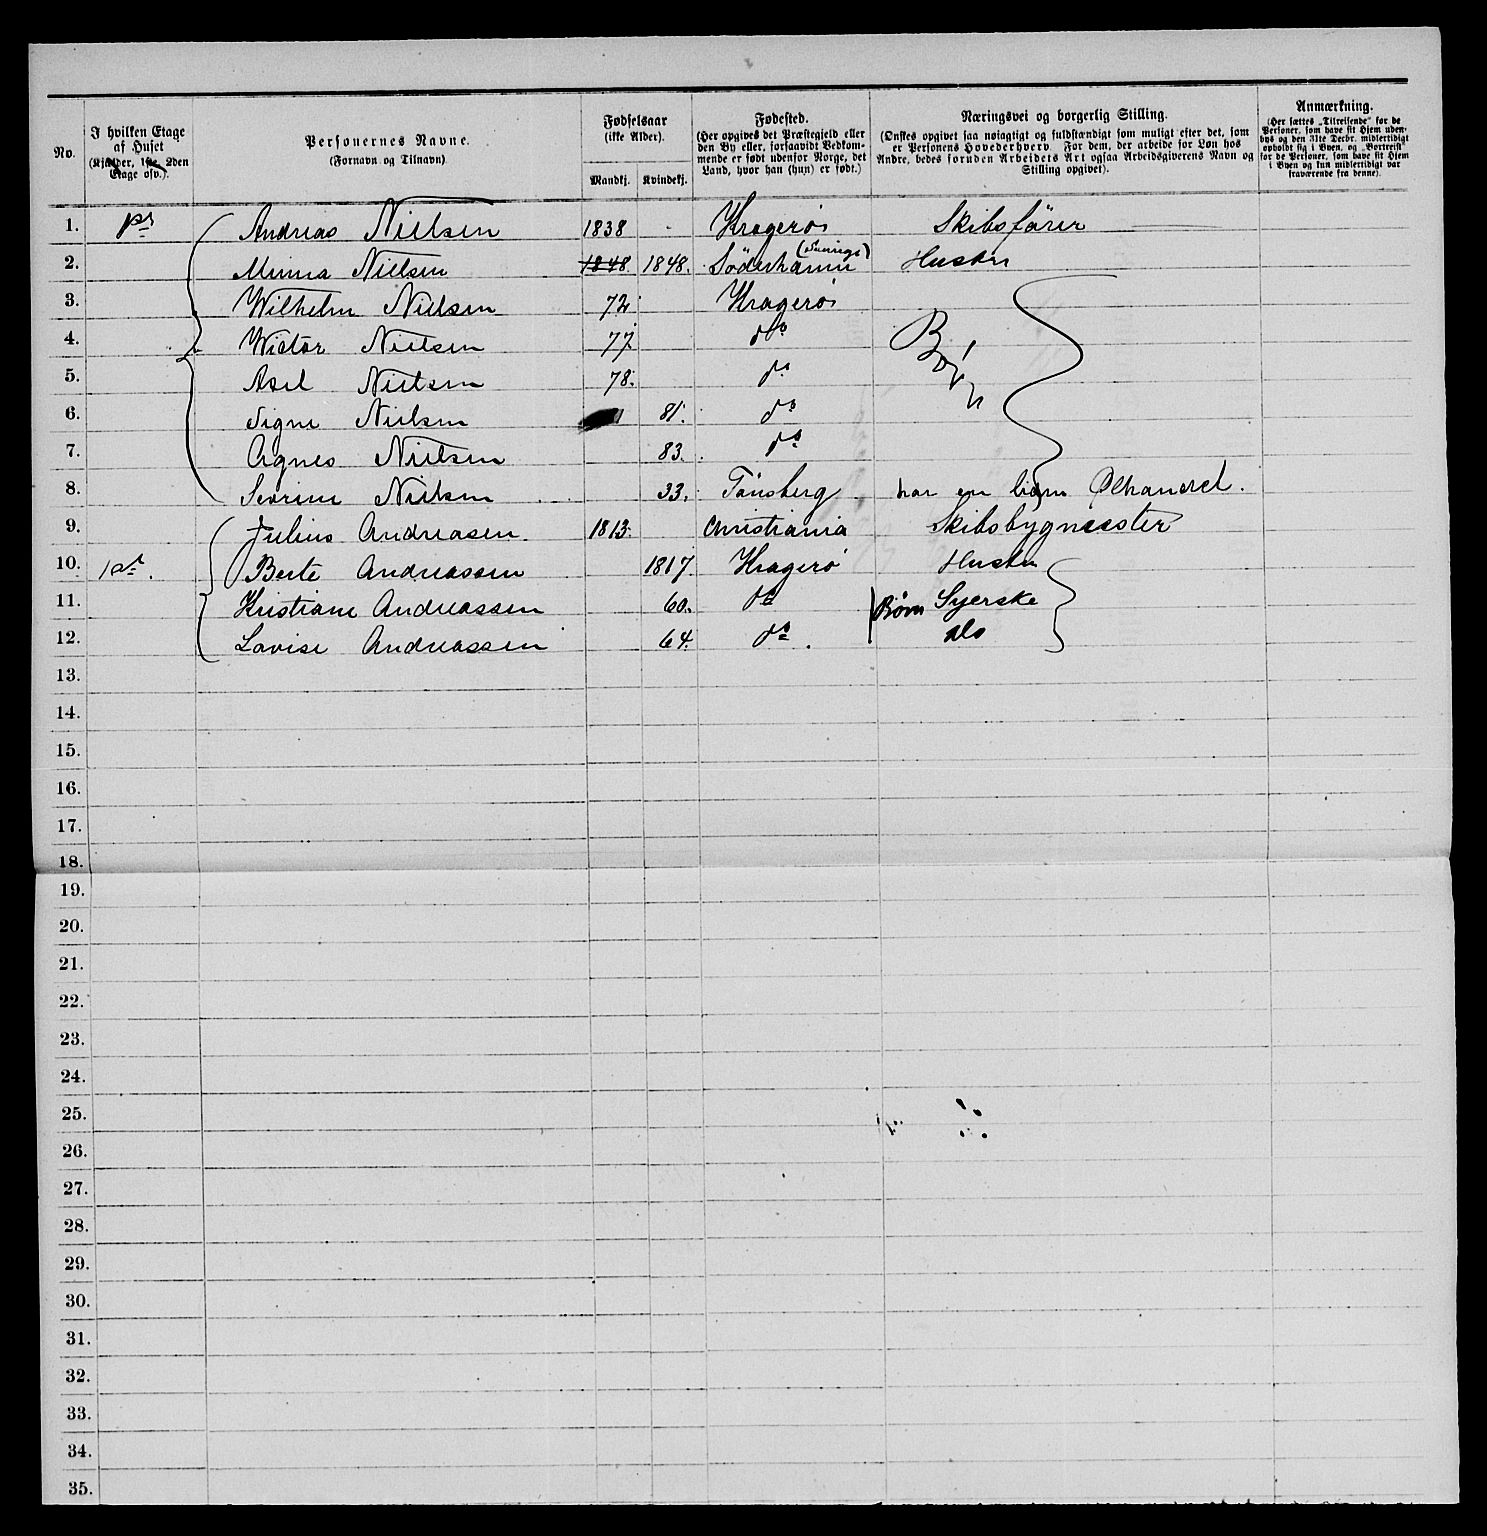 No.
I hvilken Etage af Huset (Kjælder, 1ste, 2den Etage osv.).
Personernes Navne. (Fornavn og Tilnavn)
Fødselsaar (ikke Alder).
Mandkj. Kvindekj.
Fødested. (Her opgives det Præstegjeld eller den By eller, forsaavidt Vedkommende er født udenfor Norge, det Land, hvor han (hun) er født.)
Næringsvei og borgerlig Stilling. (Ønskes opgivet saa nøiagtigt og fuldstændigt som muligt efter det, som er Personens Hovederhverv. For dem, der arbeide for Løn hos Andre, bedes foruden Arbeidets Art ogsaa Arbeidsgiverens Navn og Stilling opgivet).
Anmærkning. (Her sættes „Tilreisende" for de Personer, som have sit Hjem udenbys og den 31te Decbr. midlertidigt opholdt sig i Byen, og „Bortreist" for de Personer, som have sit Hjem i Byen og kun midlertidigt var fraværende fra denne).
1. Andreas Nielsen 1838 Kragerö Skibsförer
2. Minna Nielsen 1848 1848. Söderhamn (Sverige) Hustru
3. Wilhelm Nielsen 72 Kragerö
4. Wictor Nielsen 77 do Börn
5. Axel Nielsen 78. do
6. Signe Nielsen 81. do
7. Agnes Nielsen 83. do
8. Severine Nielsen 33. Tönsberg har en liden Ølhandel.
9. Julius Andreasen. 1813. Christiania Skibsbygmester
10. 1st. Berte Andreassen 1817 Kragerö Hustru
11. Kristiane Andreassen 60. do Børn Syerske
12. Lovise Andreassen 64. do. do
13.
14.
15.
16.
17.
18.
19.
20.
21.
22.
23.
24.
25.
26.
27.
28.
29.
30.
31.
32.
33.
34.
35.